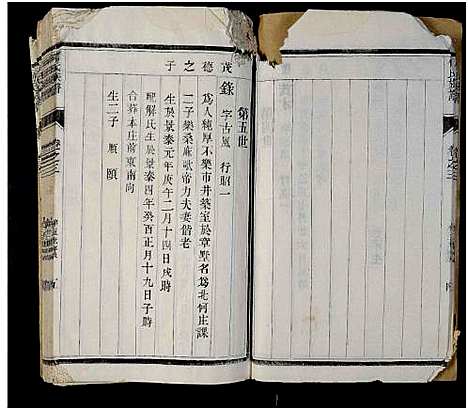 第五世
茂德之子
錄 字古風 行昭一
為人純厚不樂市井築室於章墅名為北何庄課
二子樂桑麻歌帝力夫妻偕老
生於景泰元年庚午二月十四日戌時
配解氏生於景泰四年癸酉正月十九日子時
合葬本庄前東南向
生二子 順 頤